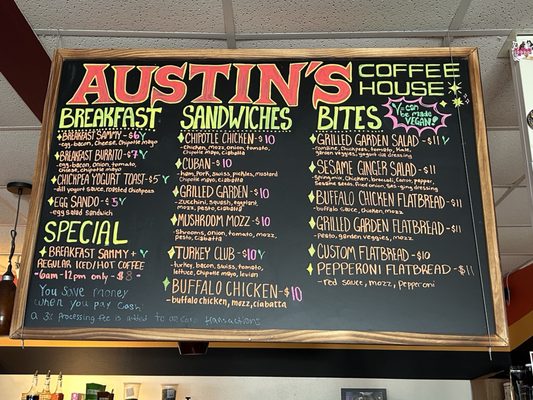 AUSTIN'S COFFEE HOUSE
BREAKFAST
BREAKFAST SAMMY-$6 V
-egg, bacon, cheese, chipotle mayo
BREAKFAST BURRITO-$7 V
-egg, bacon, onion, tomato,
chipotle mayo, cheese
CHICKPEA YOGURT TOAST-$5 V
-dill yogurt sauce, roasted chickpeas
EGG SANDO-$5 V
-egg salad sandwich
SPECIAL
BREAKFAST SAMMY + V
REGULAR ICED/HOT COFFEE
-6am-12pm only -$8-
You save money
when you pay cash
a 3% processing fee is added to all card transactions
SANDWICHES
CHIPOTLE CHICKEN-$10
-chicken, mozz, onion, tomato,
Chipotle mayo, ciabatta
CUBAN-$10
-ham, pork, swiss, pickles, mustard
Chipotle mayo, ciabatta
GRILLED GARDEN-$10
-zucchini, squash, eggplant,
mozz, pesto, ciabatta
MUSHROOM MOZZ-$10
-shrooms, onion, tomato, mozz,
pesto, ciabatta
TURKEY CLUB-$10 V
-turkey, bacon, swiss, tomato,
lettuce, chipotle mayo, levian
BUFFALO CHICKEN-$10
-buffalo chicken, mozz, ciabatta
BITES
V can be made VEGAN!
GRILLED GARDEN SALAD-$11 V
SESAME GINGER SALAD-$11
BUFFALO CHICKEN FLATBREAD-$11
-buffalo sauce, chicken, mozz
GRILLED GARDEN FLATBREAD-$11
-pesto, garden veggies, mozz
CUSTOM FLATBREAD-$10
PEPPERONI FLATBREAD-$11
-red sauce, mozz, pepperoni